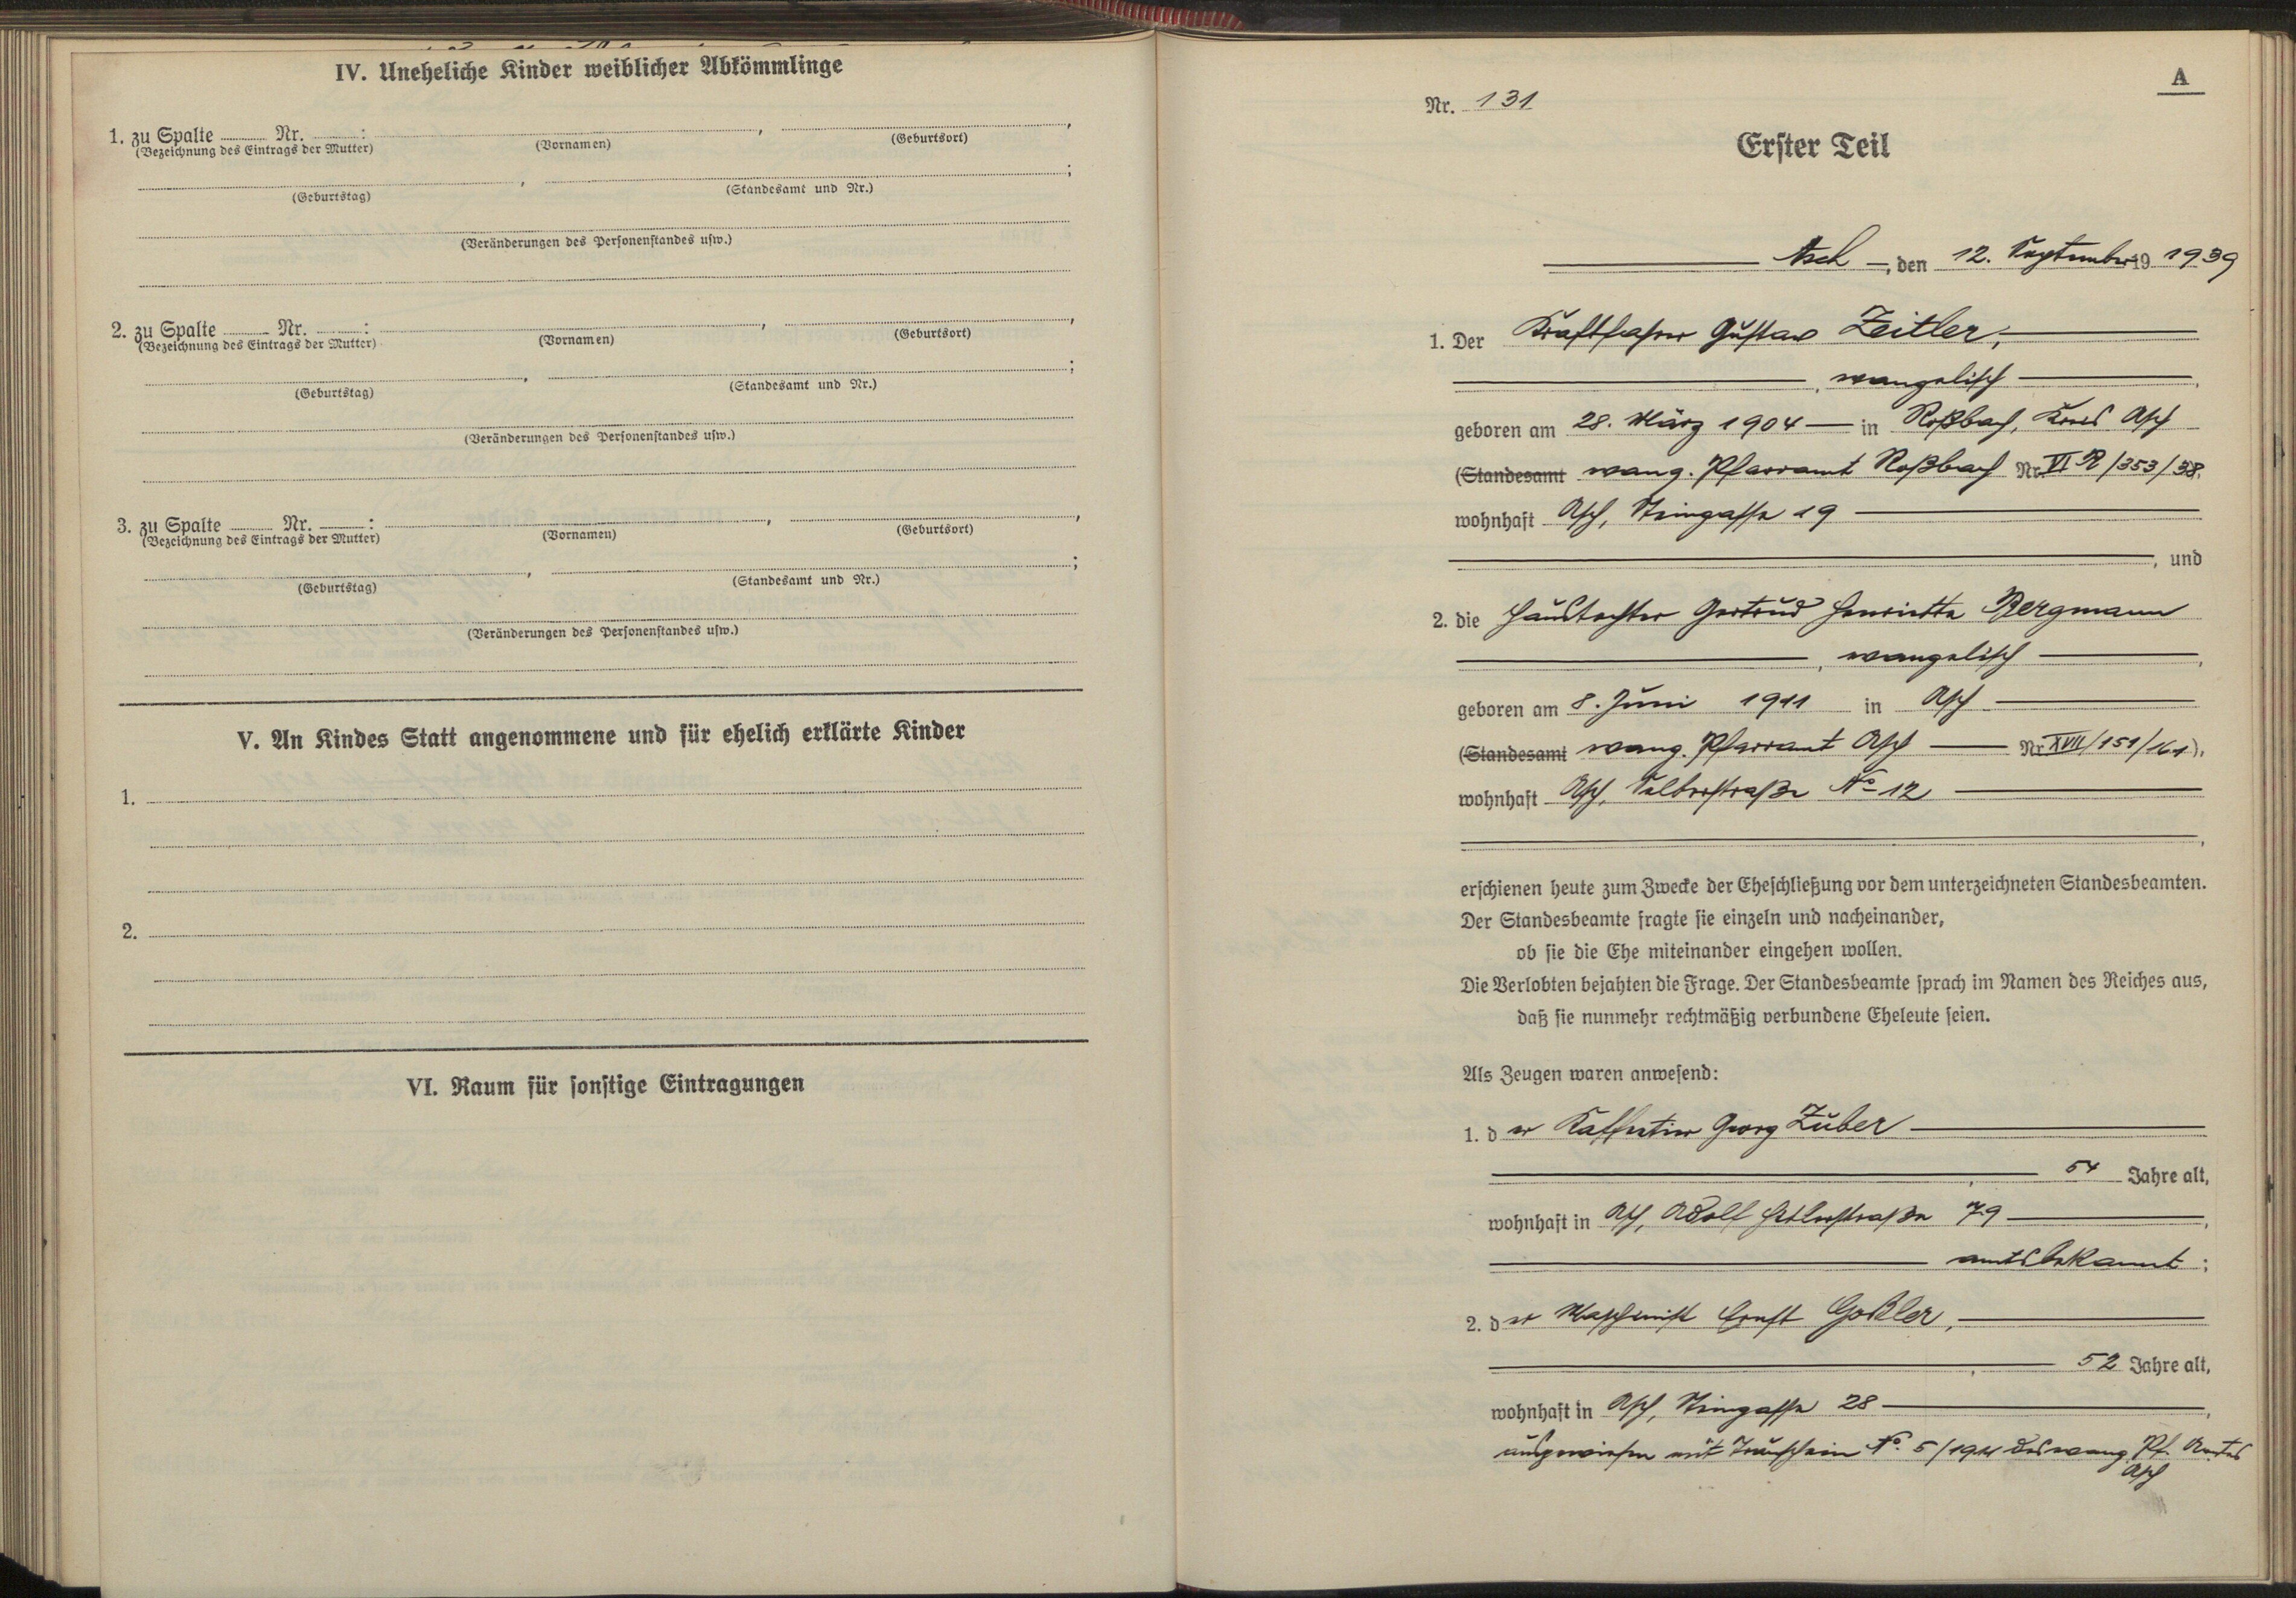 IV. Uneheliche Kinder weiblicher Abkömmlinge
1. zu Spalte ........ Nr. ........ : ........, ........,
(Bezeichnung des Eintrags der Mutter) (Vornamen) (Geburtsort)
........, ........;
(Geburtstag) (Standesamt und Nr.)
(Veränderungen des Personenstandes usw.)
2. zu Spalte ........ Nr. ........ : ........, ........,
(Bezeichnung des Eintrags der Mutter) (Vornamen) (Geburtsort)
........, ........;
(Geburtstag) (Standesamt und Nr.)
(Veränderungen des Personenstandes usw.)
3. zu Spalte ........ Nr. ........ : ........, ........,
(Bezeichnung des Eintrags der Mutter) (Vornamen) (Geburtsort)
........, ........;
(Geburtstag) (Standesamt und Nr.)
(Veränderungen des Personenstandes usw.)
V. An Kindes Statt angenommene und für ehelich erklärte Kinder
1.
2.
VI. Raum für sonstige Eintragungen
A
Nr. 131
Erster Teil
Asch, den 12. September 19 1939
1. Der Kraftfahrer Gustav Zeitler,
, evangelisch,
geboren am 28. März 1904 in Roßbach, Kreis Asch
(Standesamt evang. Pfarramt Roßbach Nr. VI R/353/38,
wohnhaft Asch, Steingasse 19
, und
2. die Haustochter Gertrud Henriette Bergmann
, evangelisch,
geboren am 8. Juni 1911 in Asch
(Standesamt evang. Pfarramt Asch Nr XVII/151/161),
wohnhaft Asch, Selberstraße No 12
erschienen heute zum Zwecke der Eheschließung vor dem unterzeichneten Standesbeamten.
Der Standesbeamte fragte sie einzeln und nacheinander,
ob sie die Ehe miteinander eingehen wollen.
Die Verlobten bejahten die Frage. Der Standesbeamte sprach im Namen des Reiches aus,
daß sie nunmehr rechtmäßig verbundene Eheleute seien.
Als Zeugen waren anwesend:
1. der Kaffetier Georg Zuber
, 54 Jahre alt,
wohnhaft in Asch, Adolf Hitlerstraße 79,
amtsbekannt;
2. der Maschinist Ernst Goßler,
, 52 Jahre alt,
wohnhaft in Asch, Steingasse 28,
ausgewiesen mit Trauschein No. 5/1911 des evang. Pf. Amtes
Asch